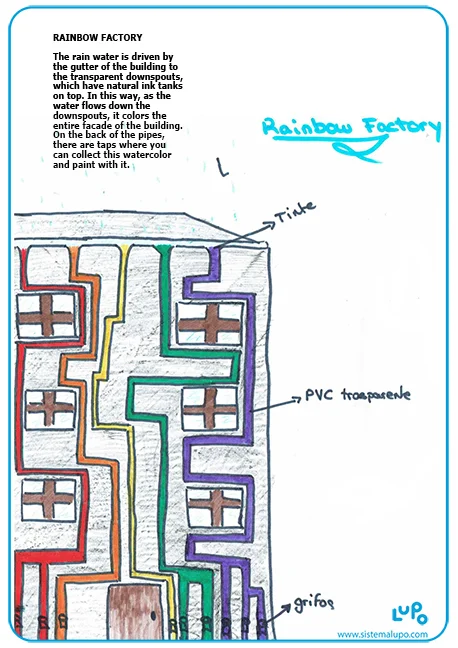 RAINBOW FACTORY
The rain water is driven by
the gutter of the building to
the transparent downspouts,
which have natural ink tanks
on top. In this way, as the
water flows down the
downspouts, it colors the
entire facade of the building.
On the back of the pipes,
there are taps where you
can collect this watercolor
and paint with it.
Rainbow Factory
Tinte
PVC trasparente
grifos
LUPO
www.sistemalupo.com